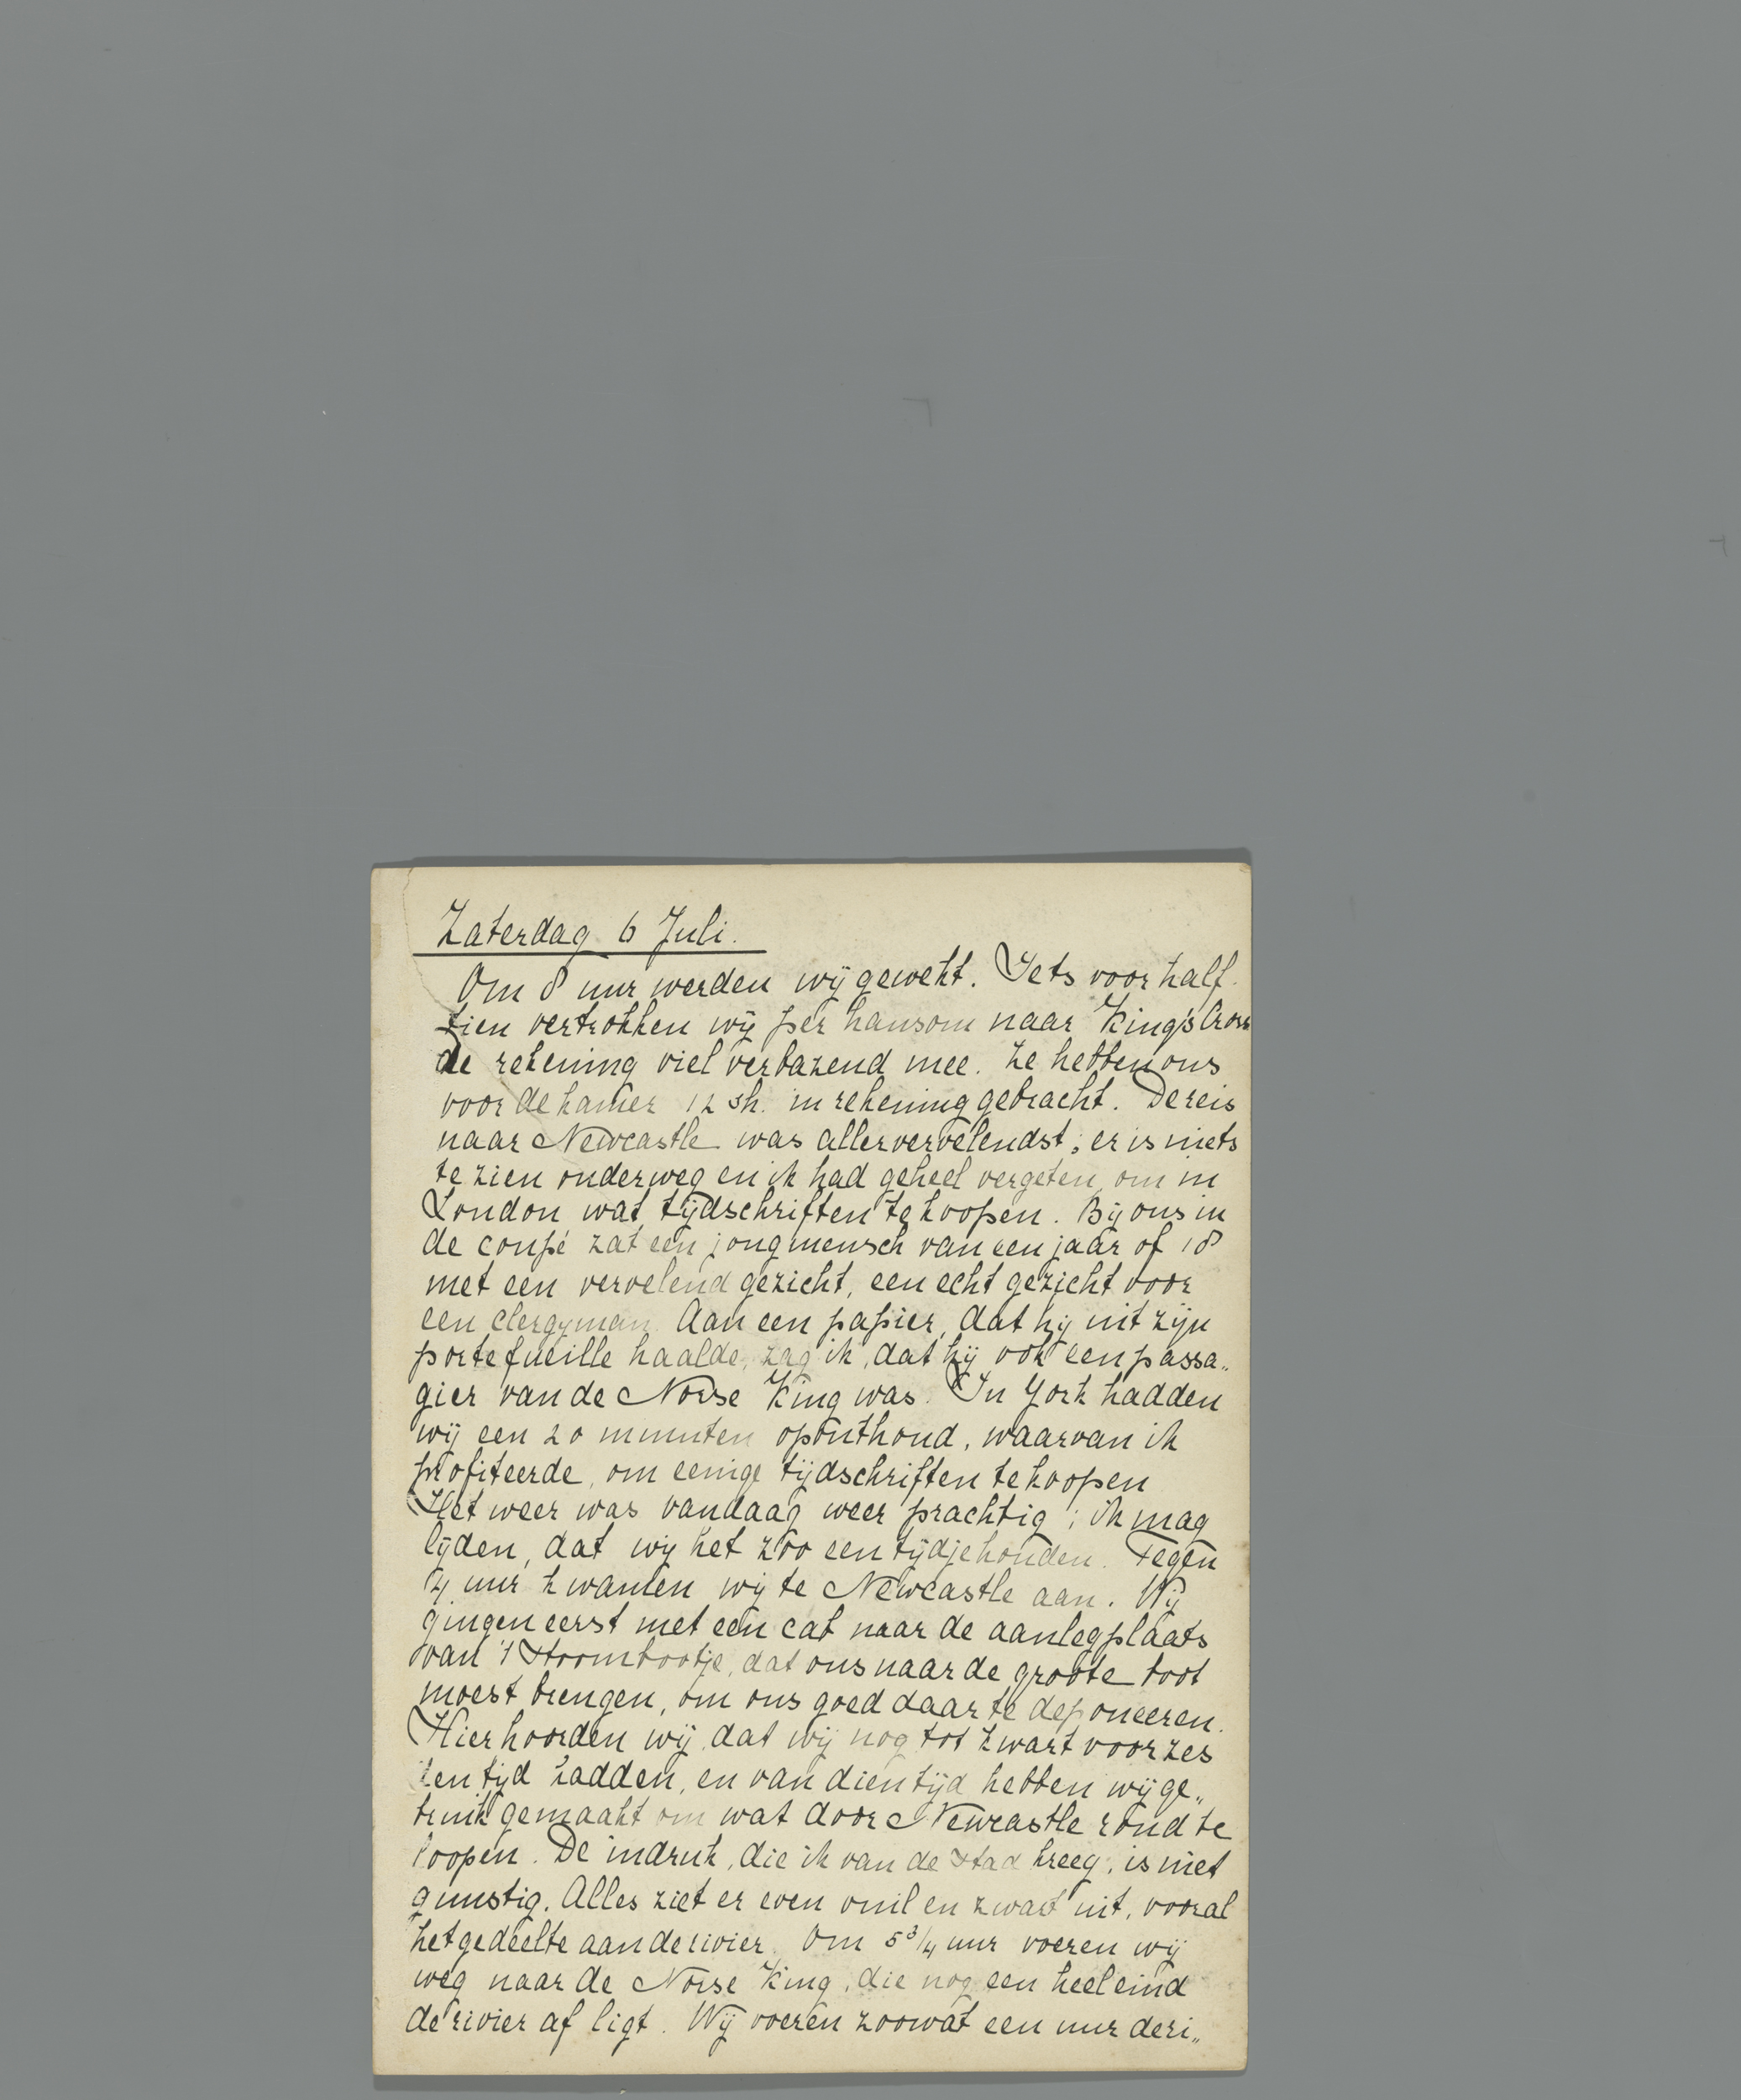 Zaterdag 6 Juli.
Om 8 uur werden wij gewekt. Iets voor half
tien vertrokken wij per hansom naar King's Cross
de rekening viel verbazend mee. Ze hebben ons
voor de kamer 12 sh. in rekening gebracht. De reis
naar Newcastle was allervervelendst; er is niets
te zien onderweg en ik had geheel vergeten, om in
London wat tijdschriften te koopen. Bij ons in
de coupé zat een jongmensch van een jaar of 18
met een vervelend gezicht, een echt gezicht voor
een clergyman. Aan een papier, dat hij uit zijn
portefueille haalde, zag ik, dat hij ook een passa„
gier van de Norse King was. In York hadden
wij een 20 minuten oponthoud, waarvan ik
profiteerde, om eenige tijdschriften te koopen
Het weer was vandaag weer prachtig; ik mag
lijden, dat wij het zoo een tijdje houden. Tegen
4 uur kwamen wij te Newcastle aan. Wij
gingen eerst met een cab naar de aanlegplaats
van 't stoombootje, dat ons naar de groote boot
moest brengen, om ons goed daar te deponeeren.
Hier hoorden wij, dat wij nog tot kwart voor zes
den tijd hadden, en van dien tijd hebben wij ge„
bruik gemaakt om wat door Newcastle rond te
loopen. De indruk, die ik van de stad kreeg, is niet
gunstig. Alles ziet er even vuil en zwart uit, vooral
het gedeelte aan de rivier. Om 5 3/4 uur voeren wij
weg naar de Norse King, die nog een heel eind
de rivier af ligt. Wij voeren zoowat een uur de ri„